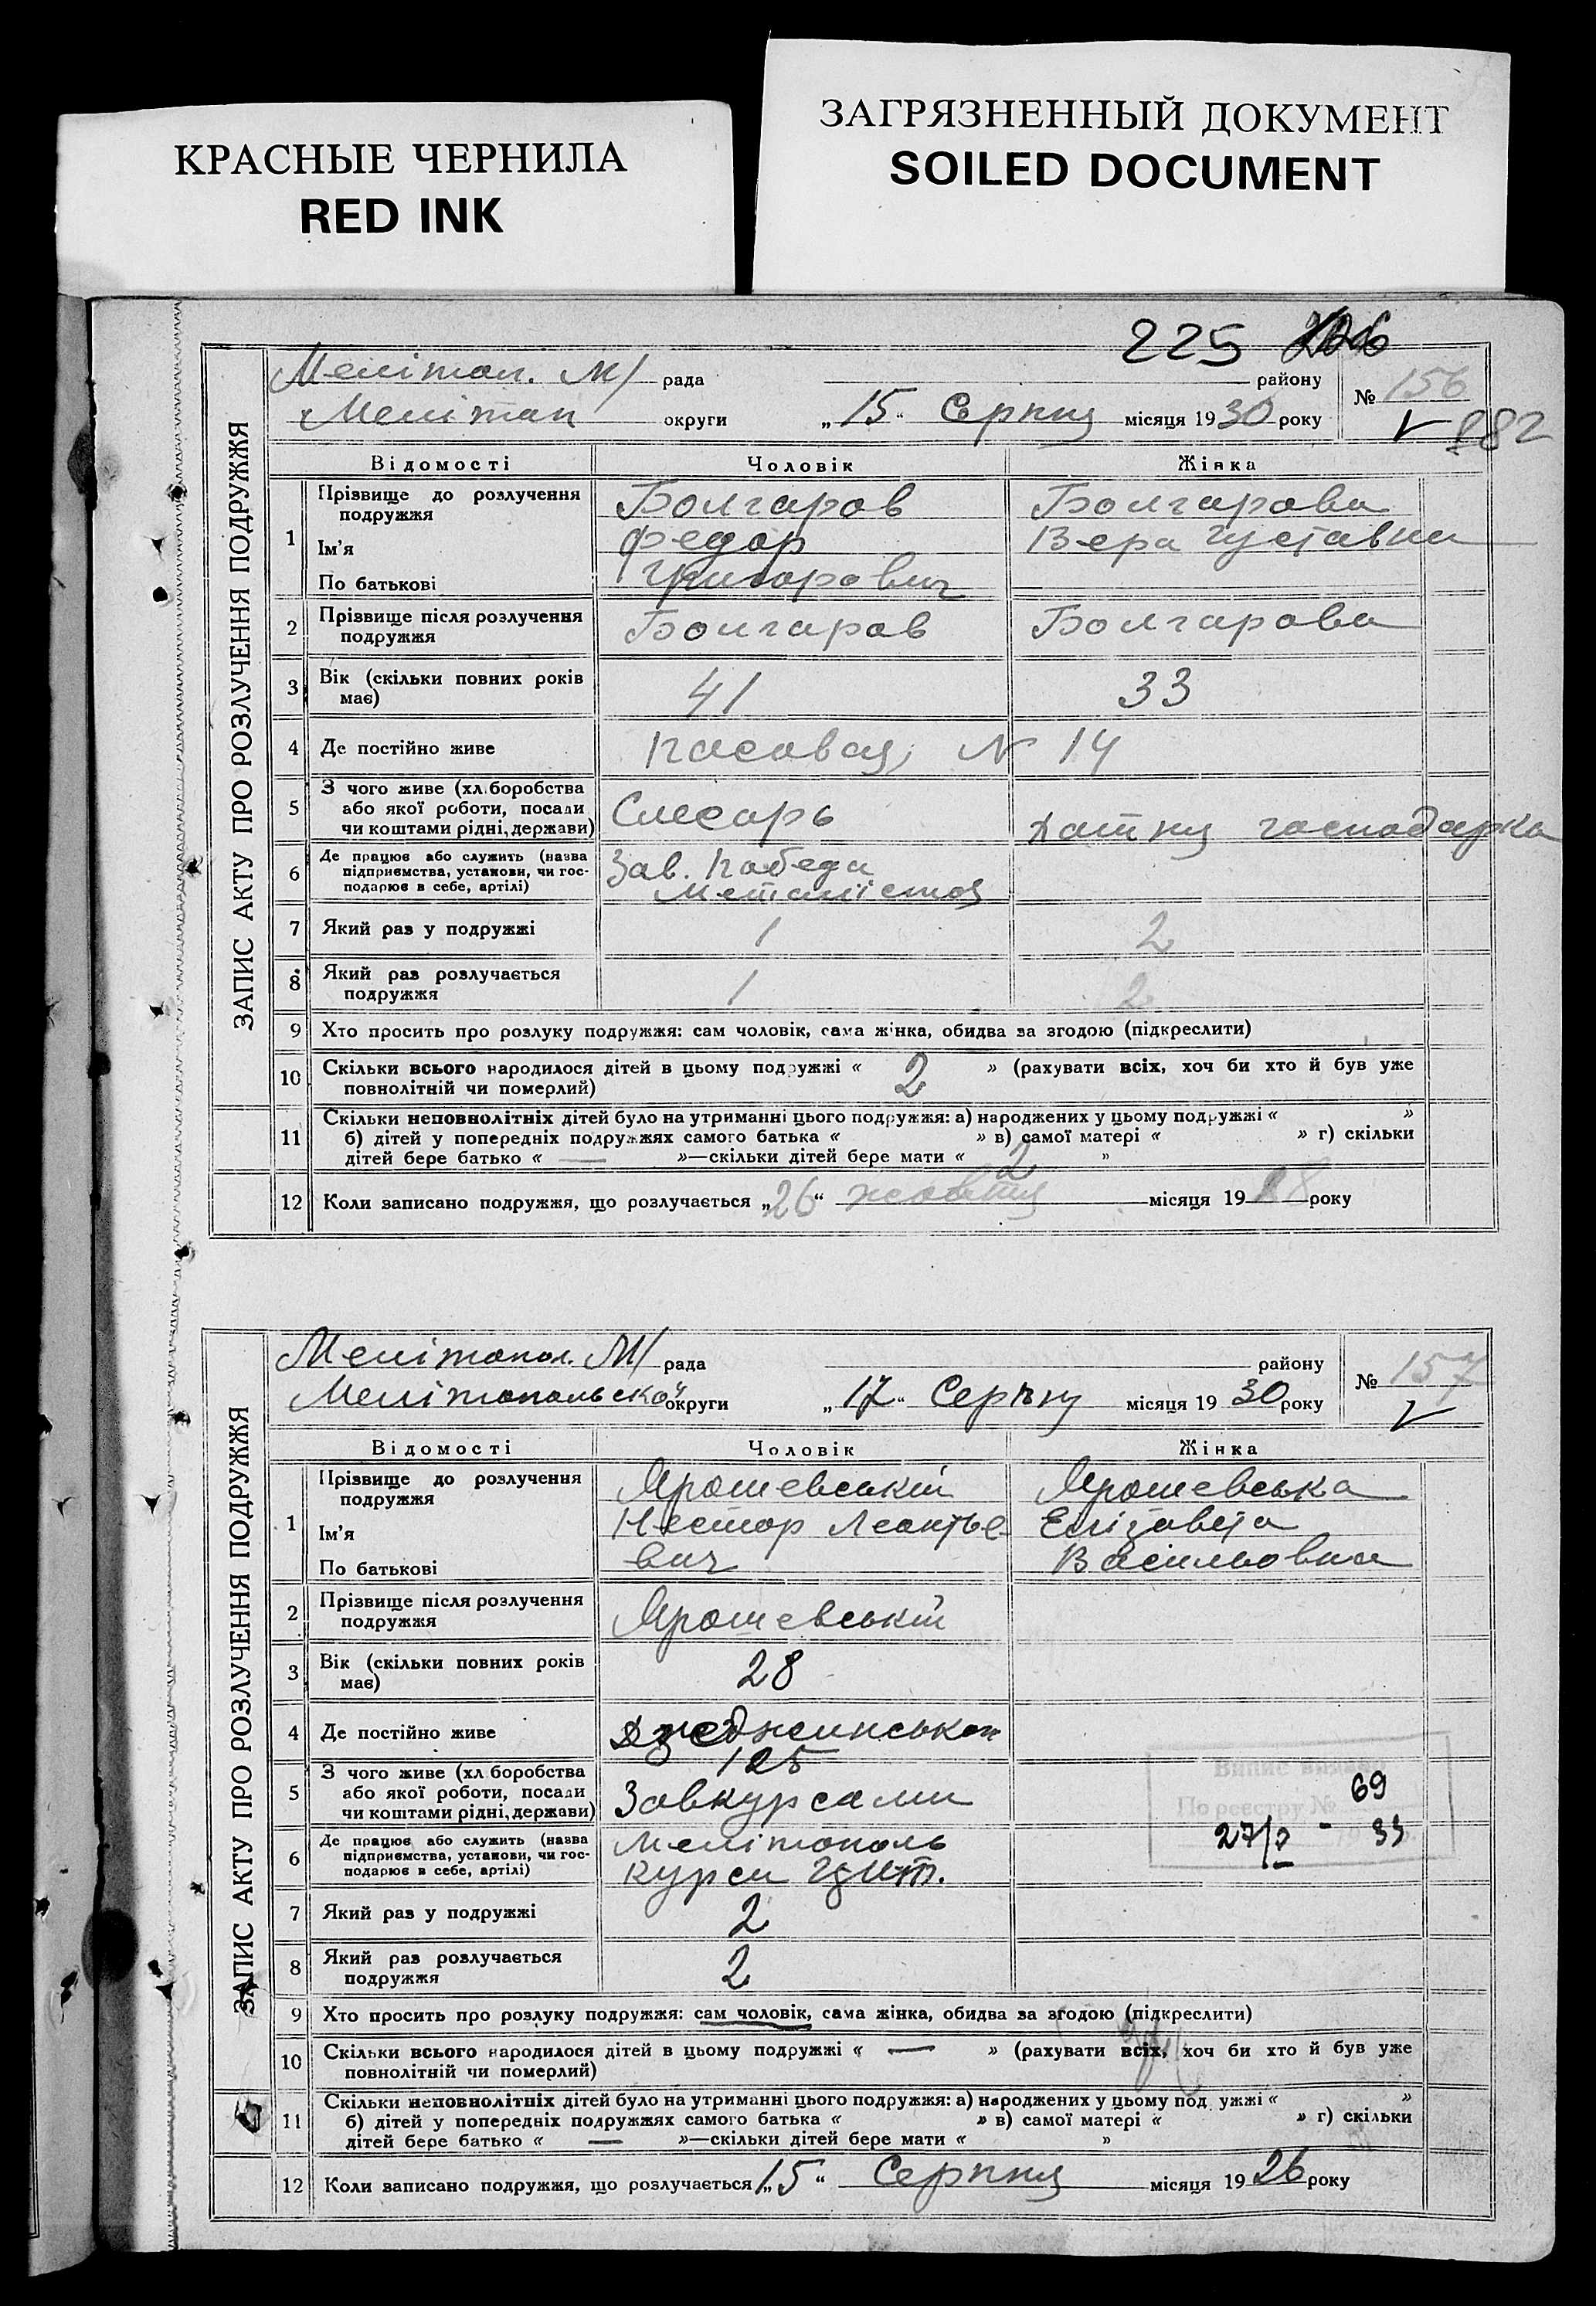 КРАСНЫЕ ЧЕРНИЛА
RED INK
ЗАГРЯЗНЕННЫЙ ДОКУМЕНТ
SOILED DOCUMENT
225
ЗАПИС АКТУ ПРО РОЗЛУЧЕННЯ ПОДРУЖЖЯ
Мелітоп. М/ рада району № 156
Мелітоп округи „15“ Серпня місяця 1930 року
882
Відомості Чоловік Жінка
1 Прізвище до розлучення подружжя Болгаров Болгарова
Ім'я Федор Вера Густавна
По батькові Григорович
2 Прізвище після розлучення подружжя Болгаров Болгарова
3 Вік (скільки повних років має) 41 33
4 Де постійно живе № 14
5 З чого живе (хліборобства або якої роботи, посади чи коштами рідні, держави) Слесарь господарка
6 Де працює або служить (назва підприємства, установи, чи господарює в себе, артілі) Зав. Победа
Металістов
7 Який раз у подружжі 1 2
8 Який раз розлучається подружжя 1 2
9 Хто просить про розлуку подружжя: сам чоловік, сама жінка, обидва за згодою (підкреслити)
10 Скільки всього народилося дітей в цьому подружжі « 2 » (рахувати всіх, хоч би хто й був уже
повнолітній чи померлий)
11 Скільки неповнолітніх дітей було на утриманні цього подружжя: а) народжених у цьому подружжі « »
б) дітей у попередніх подружжях самого батька « » в) самої матері « » г) скільки
дітей бере батько « — »—скільки дітей бере мати « 2 »
12 Коли записано подружжя, що розлучається „26“ жовтня місяця 19 28 року
ЗАПИС АКТУ ПРО РОЗЛУЧЕННЯ ПОДРУЖЖЯ
Мелітопол. М/ рада району № 157
Мелітопольської округи „17“ Серпня місяця 1930 року
Відомості Чоловік Жінка
1 Прізвище до розлучення подружжя Ярошевській Ярошевська
Ім'я Нестор Леонтье- Елізавета
По батькові вич Васильовна
2 Прізвище після розлучення подружжя Ярошевській
3 Вік (скільки повних років має) 28
4 Де постійно живе
125
5 З чого живе (хліборобства або якої роботи, посади чи коштами рідні, держави) Завкурсами
6 Де працює або служить (назва підприємства, установи, чи господарює в себе, артілі) Мелітополь
курси
Випис видано
По реєстру № 69
33
7 Який раз у подружжі 2
8 Який раз розлучається подружжя 2
9 Хто просить про розлуку подружжя: сам чоловік, сама жінка, обидва за згодою (підкреслити)
10 Скільки всього народилося дітей в цьому подружжі « — » (рахувати всіх, хоч би хто й був уже
повнолітній чи померлий)
11 Скільки неповнолітніх дітей було на утриманні цього подружжя: а) народжених у цьому подружжі « »
б) дітей у попередніх подружжях самого батька « » в) самої матері « » г) скільки
дітей бере батько « — »—скільки дітей бере мати « »
12 Коли записано подружжя, що розлучається „15“ Серпня місяця 1926 року